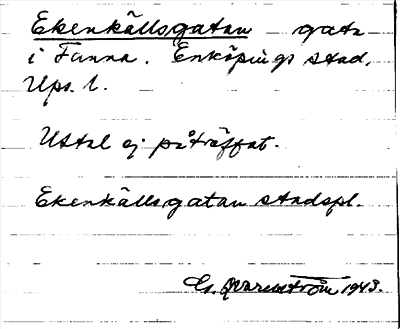 Ekenkällsgatan gata
i Fanna. Enköpings stad.
Ups. l.
Uttal ej påträffat.
Ekenkällsgatan stadspl.
Gs. Qvarnström 1943.